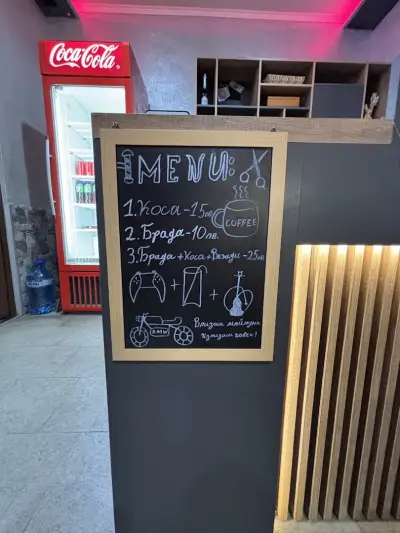 Coca-Cola
MENU:
1. Коса - 15лв.
COFFEE
2. Брада - 10лв.
3. Брада + Коса + Вежди - 25лв.
BMW
Влизаш маймуна
Излизаш човек!